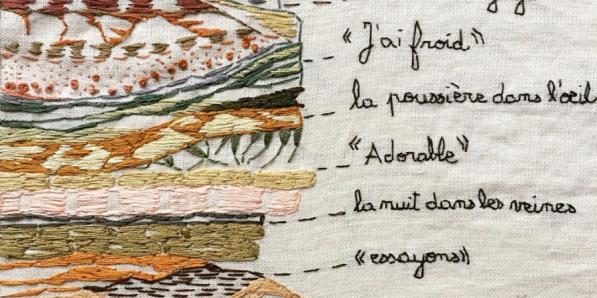 « J'ai froid »
la poussière dans l'œil
« Adorable »
la nuit dans les veines
« essayons »